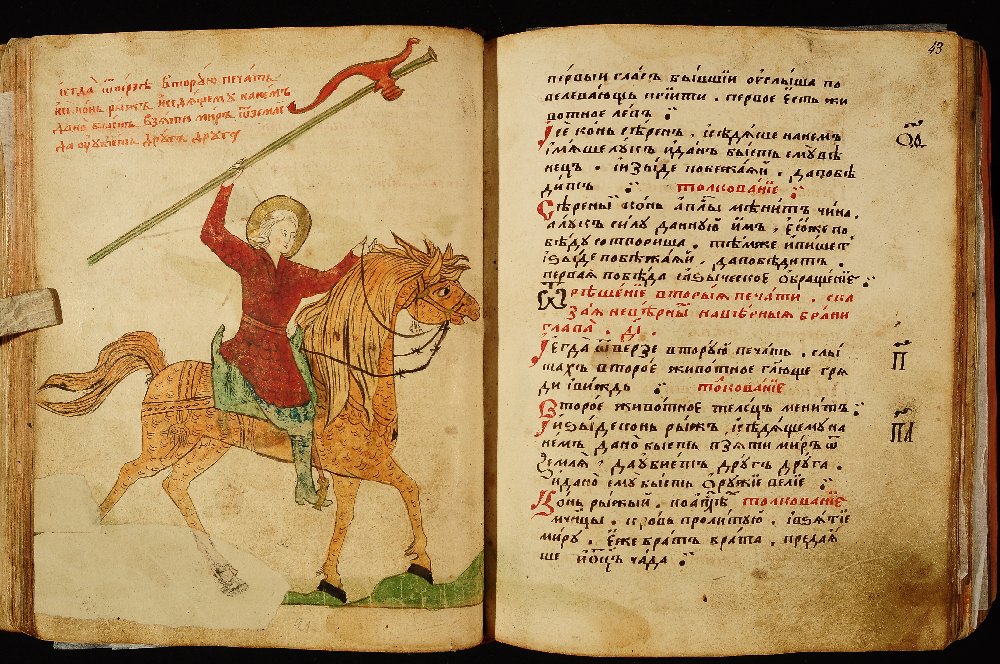 и егда ѿверзе вторую печать
и се конь рыжъ и седящему на немъ
дано бысть взяти миръ ѿ земля
да оубиетъ другъ друга
43
первыи гласъ бывшии оуслыша по
велевающь приити . первое есть жи
вотное левъ
И се конь серенъ , и седяше на немъ
имяше лукъ и данъ бысть ему ве
нецъ . и изыде побежаяй , да побе
дитъ толкованїе
Сереный конь апⷭ҇лы менитъ чина ,
а лукъ силу данную имъ , еюже по
беду сотвориша . темже и пишет
изыде побежаяй , да победитъ .
первая победа языческое обращенїе
Ѿрешенїе вторыя печати . ска
зая неверны҇ на верныя брани
глава . д҃і .
И егда ѿверзе вторую печать , слы
шахъ второе животное гл҃юще гря
ди и виждь толкованїе
Второе животное телецъ менитъ
И изыде конь рыжъ , и седящему на
немъ , дано бысть взяти миръ ѿ
земля , да убиетъ другъ друга .
и дано ему бысть оружїе велїе
Конь рыжый , толкованїе
мч҃нцы . кровь пролитую . і взятїе
миру . еже братъ брата , предая
ше и ѿц҃ъ чада
П҃
П҃А